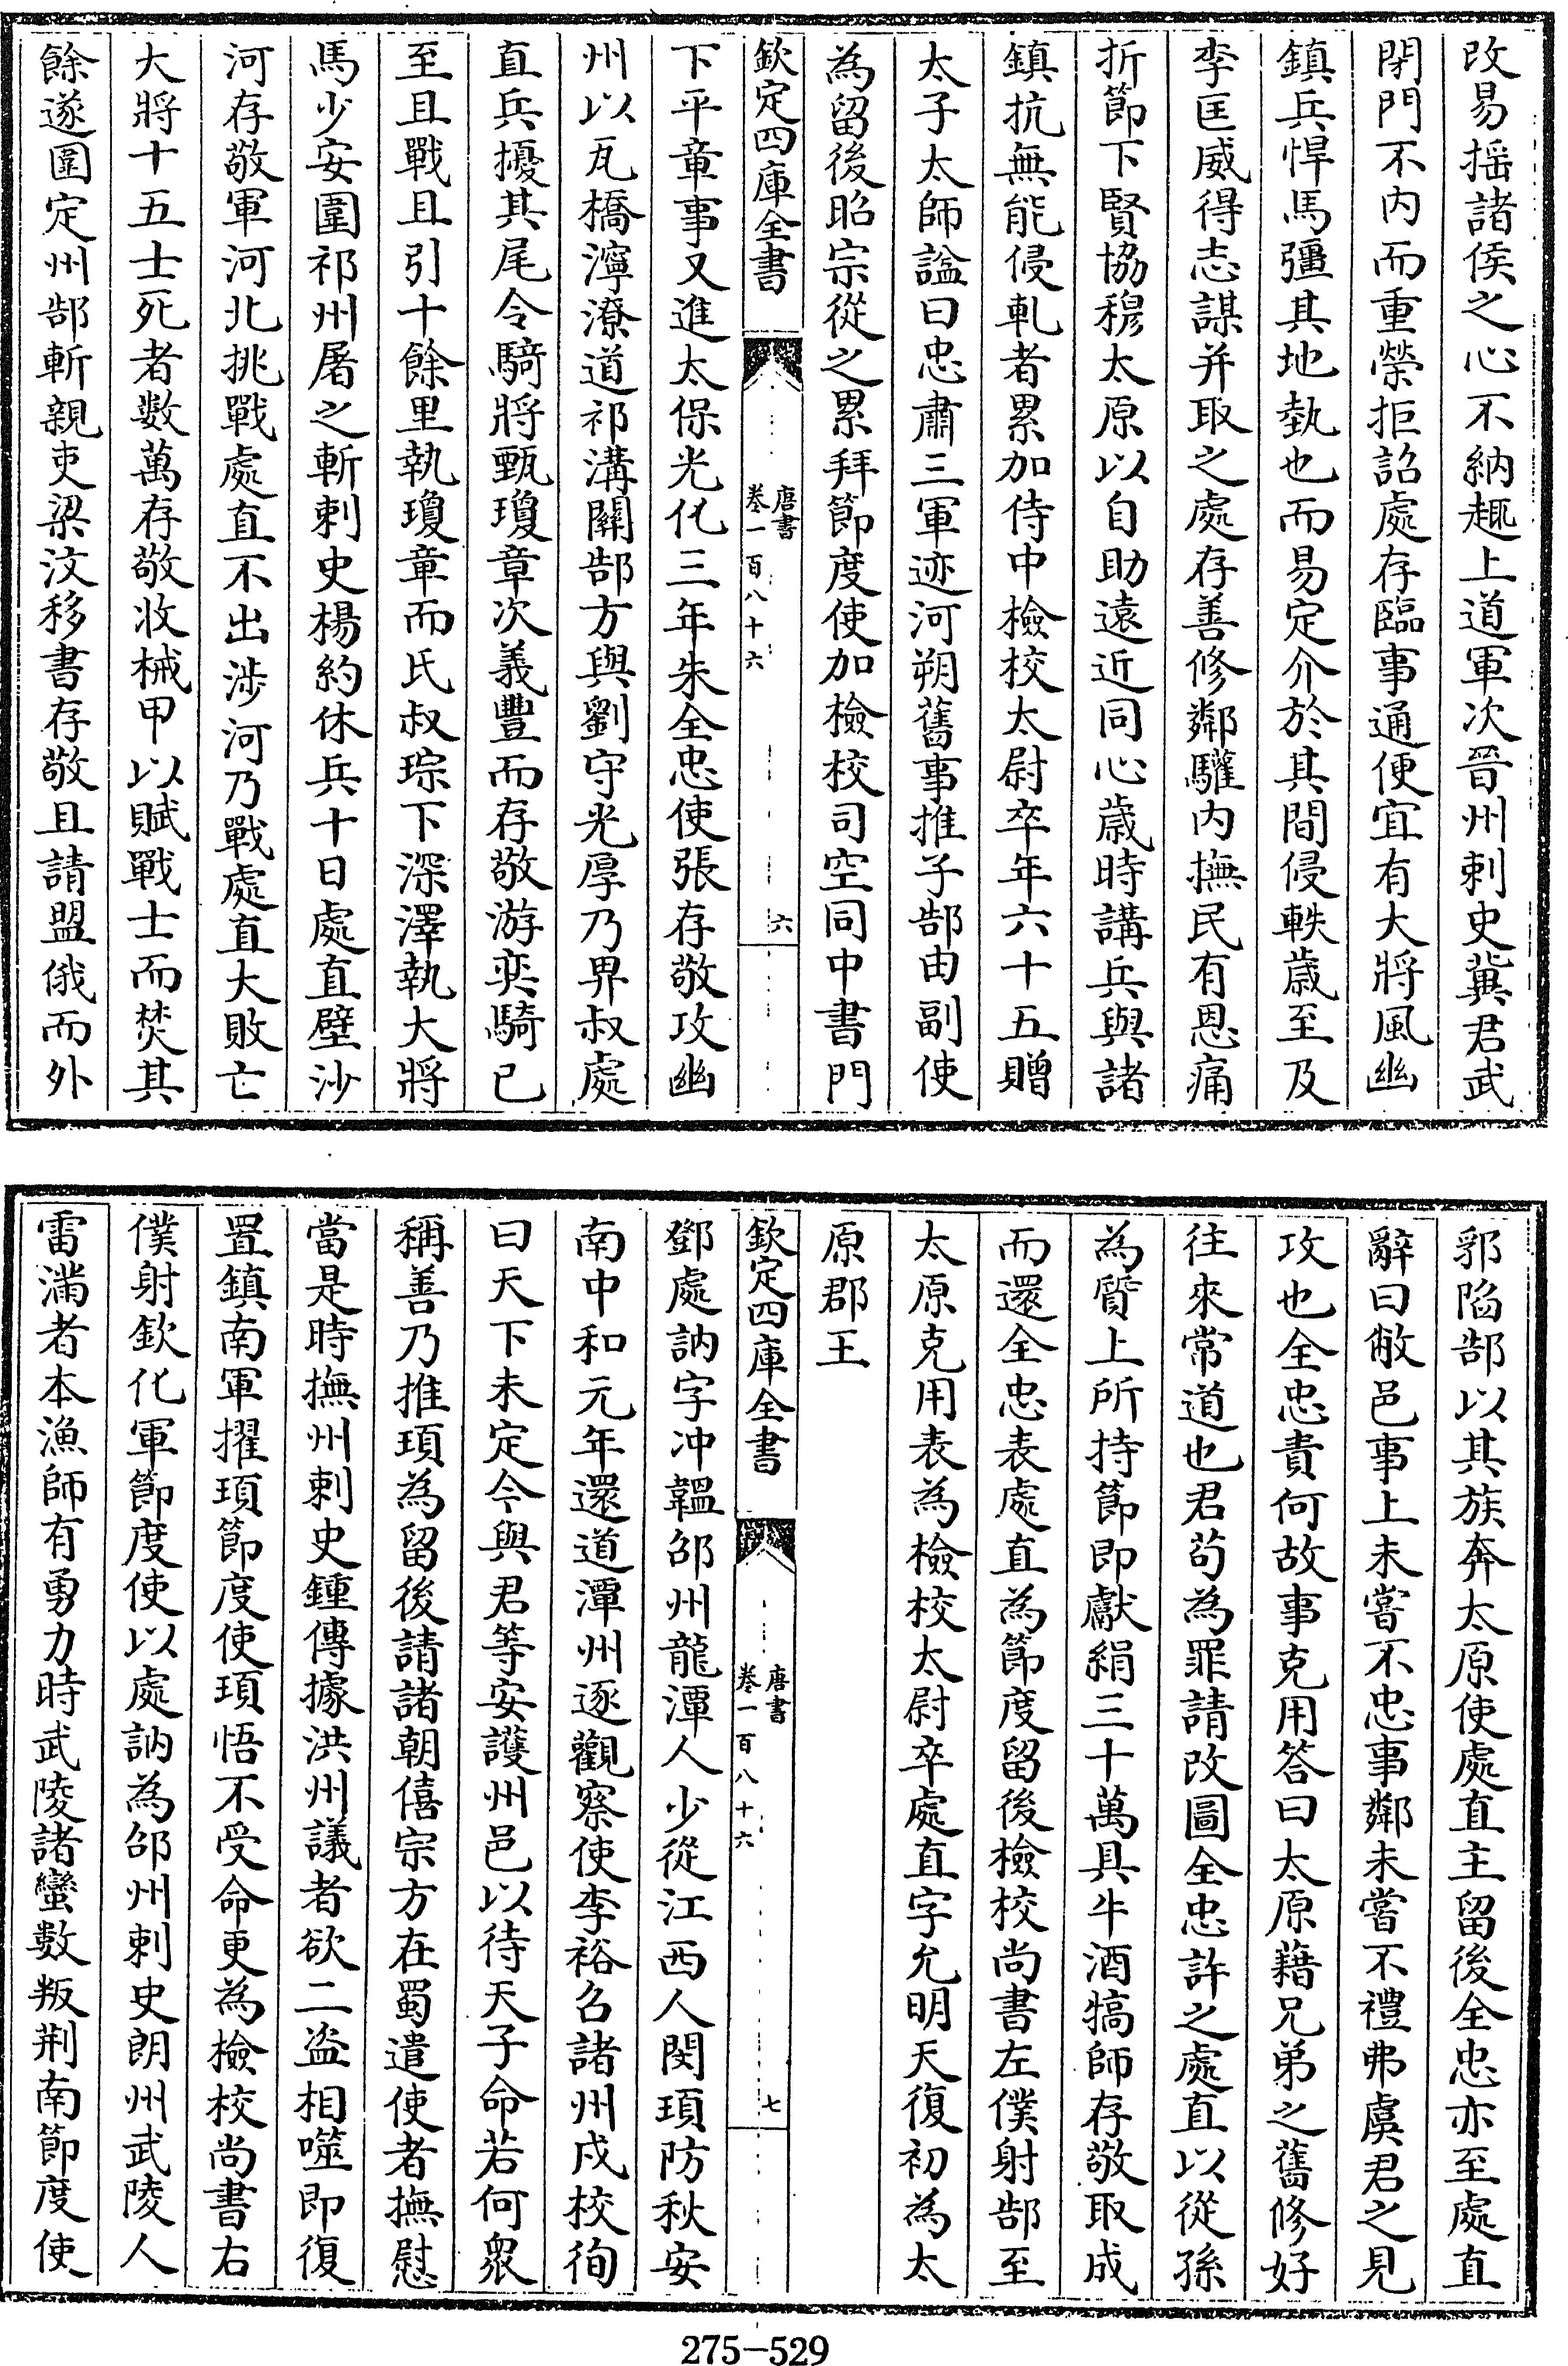 改易揺諸侯之心不納趣上道軍次晉州刺史冀君武
閉門不内而重榮拒詔處存臨事通便宜有大將風幽
鎮兵悍馬彊其地埶也而易定介於其間侵軼歳至及
李匡威得志謀并取之處存善修鄰驩内撫民有恩痛
折節下賢協穆太原以自助遠近同心歳時講兵與諸
鎮抗無能侵軋者累加侍中檢校太尉卒年六十五贈
太子太師諡曰忠肅三軍迹河朔舊事推子郜由副使
為留後昭宗從之累拜節度使加檢校司空同中書門
欽定四庫全書
唐書
卷一百八十六
六
下平章事又進太保光化三年朱全忠使張存敬攻幽
州以瓦橋濘潦道祁溝關郜方與劉守光厚乃畀叔處
直兵擾其尾令騎將甄瓊章次義豐而存敬游奕騎已
至且戰且引十餘里執瓊章而氏叔琮下深澤執大將
馬少安圍祁州屠之斬刺史楊約休兵十日處直壁沙
河存敬軍河北挑戰處直不出涉河乃戰處直大敗亡
大將十五士死者数萬存敬收械甲以賦戰士而焚其
餘遂圍定州郜斬親吏梁汶移書存敬且請盟俄而外
郛陷郜以其族奔太原使處直主留後全忠亦至處直
辭曰敝邑事上未嘗不忠事鄰未嘗不禮弗虞君之見
攻也全忠責何故事克用答曰太原藉兄弟之舊修好
往來常道也君茍為罪請改圖全忠許之處直以從孫
為質上所持節即獻絹三十萬具牛酒犒師存敬取成
而還全忠表處直為節度留後檢校尚書左僕射郜至
太原克用表為檢校太尉卒處直字允明天復初為太
原郡王
欽定四庫全書
唐書
卷一百八十六
七
鄧處訥字冲韞邵州龍潭人少從江西人閔頊防秋安
南中和元年還道潭州逐觀察使李裕召諸州戍校徇
曰天下未定今與君等安護州邑以待天子命若何衆
稱善乃推頊為留後請諸朝僖宗方在蜀遣使者撫慰
當是時撫州刺史鍾傳據洪州議者欲二盜相噬即復
置鎮南軍擢頊節度使頊悟不受命更為檢校尚書右
僕射欽化軍節度使以處訥為邵州刺史朗州武陵人
雷滿者本漁師有勇力時武陵諸蠻數叛荆南節度使
275-529